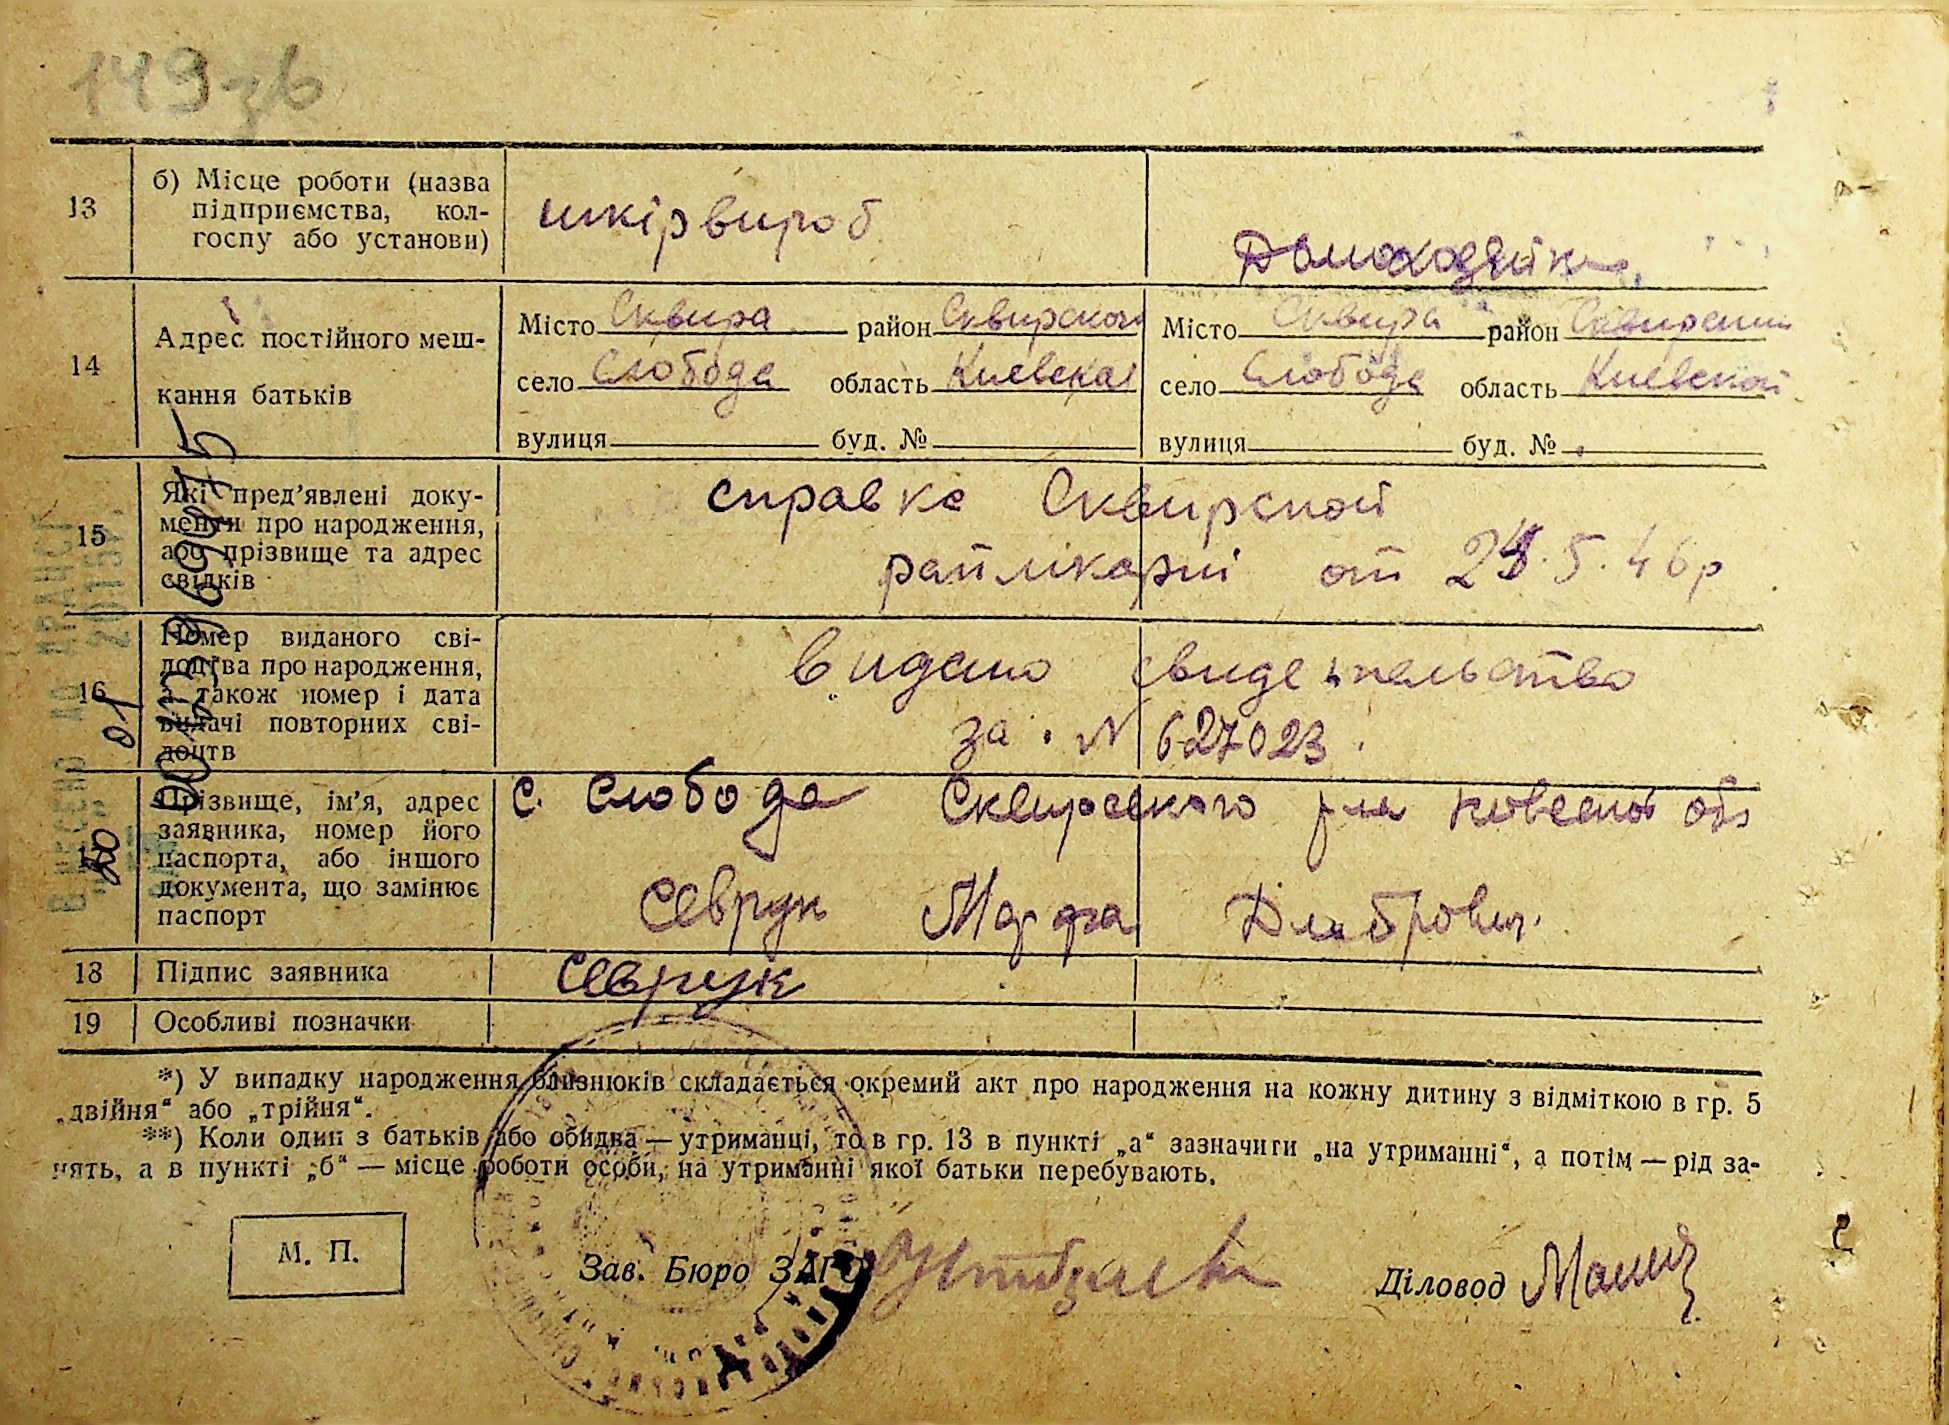 149зв
13
б) Місце роботи (назва
підприємства, кол-
госпу або установи)
шкірвироб
Домохозяйка
14
Адрес постійного меш-
кання батьків
Місто Сквира район Сквирской
село Слобода область Киевская
вулиця буд. №
Місто Сквира район
село Слобода область Киевской
вулиця буд. №
15
Які пред'явлені доку-
менти про народження,
або прізвище та адрес
свідків
справка Сквирской
райлікарні от 5.46р
16
Номер виданого сві-
доцтва про народження,
а також номер і дата
видачі повторних сві-
доцтв
видано свидетельство
за N 627023
Прізвище, ім'я, адрес
заявника, номер його
паспорта, або іншого
документа, що замінює
паспорт
с. Слобода Сквирского р-на обл
Севрук Марфа
18
Підпис заявника
Севрук
19
Особливі позначки
*) У випадку народження близнюків складається окремий акт про народження на кожну дитину з відміткою в гр. 5
„двійня“ або „трійня“.
**) Коли один з батьків або обидва — утриманці, то в гр. 13 в пункті „а“ зазначити „на утриманні“, а потім — рід за-
нять, а в пункті „б“ — місце роботи особи, на утриманні якої батьки перебувають.
М. П.
Зав. Бюро ЗАГС
Діловод